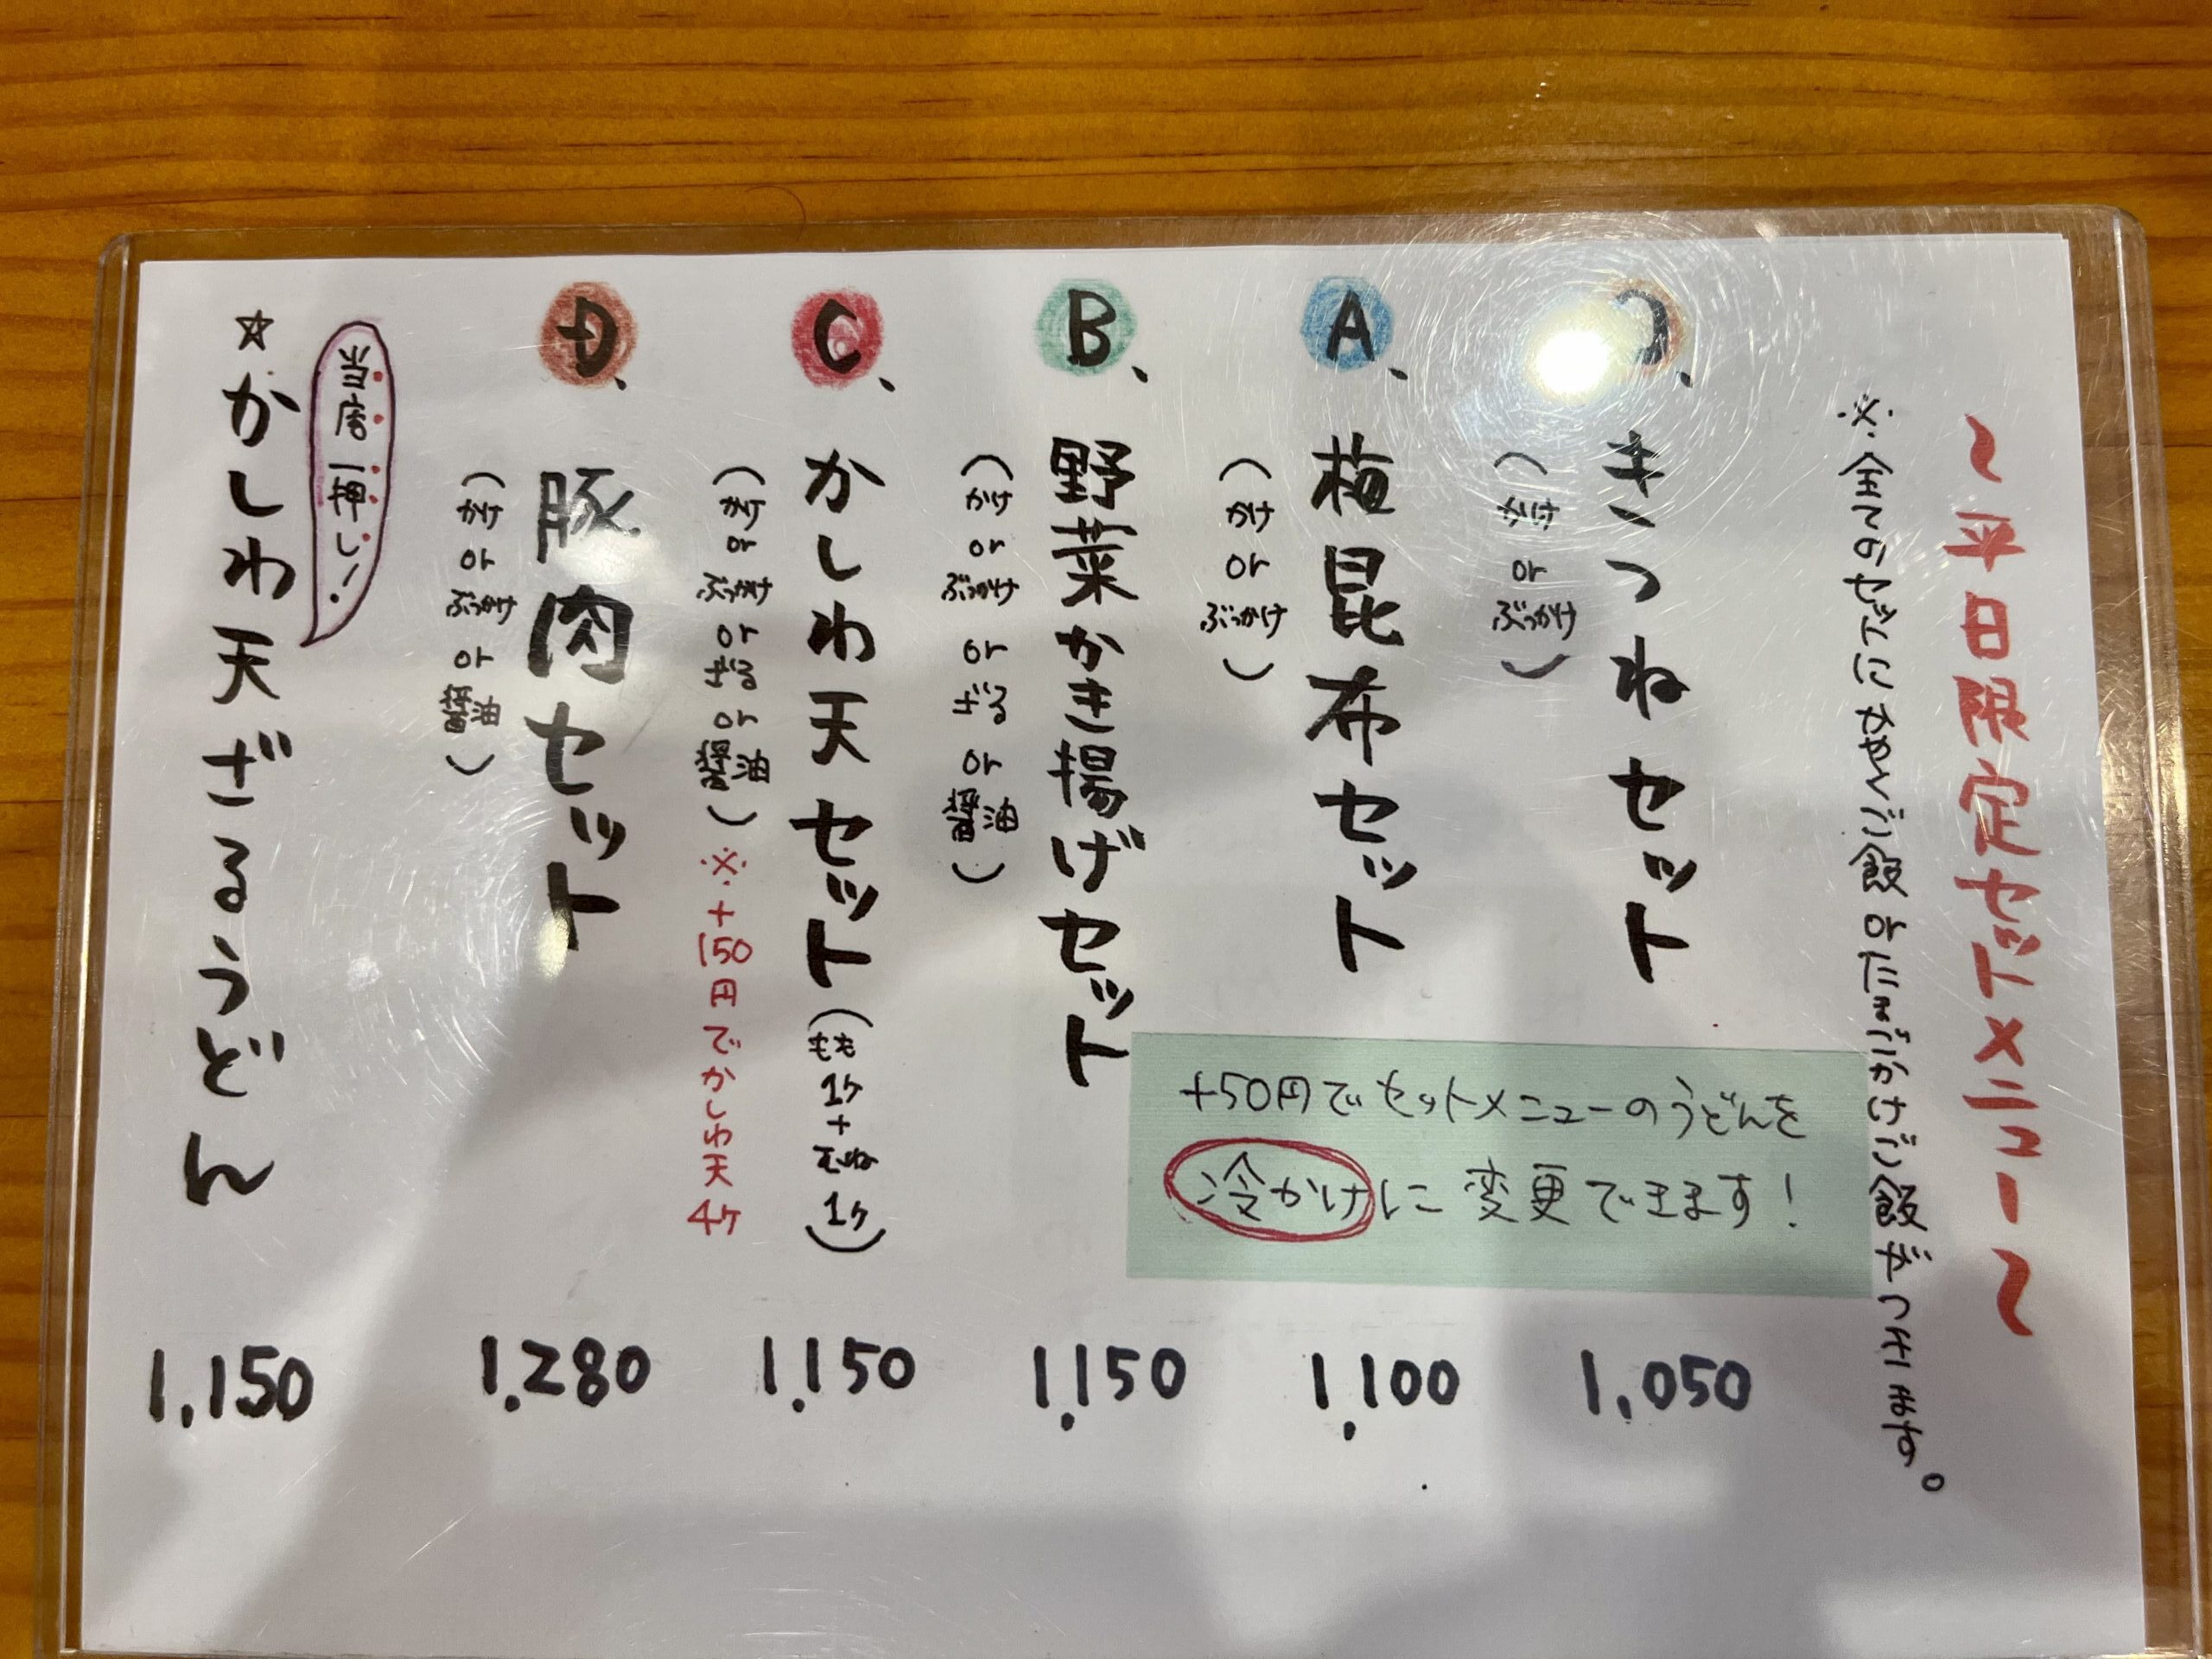 ～平日限定セットメニュー～
※全てのセットにかやくご飯orたまごかけご飯がつきます。
つ、きつねセット 1,050
(かけorぶっかけ)
A、梅昆布セット 1,100
(かけorぶっかけ)
B、野菜かき揚げセット 1,150
(かけorぶっかけorざるor醤油)
C、かしわ天セット(もも1ヶ+むね1ヶ) 1,150
(かけorぶっかけorざるor醤油)※+150円でかしわ天4ヶ
D、豚肉セット 1,280
(かけorぶっかけor醤油)
当店一押し!
☆かしわ天ざるうどん 1,150
+50円でセットメニューのうどんを
冷かけに変更できます!